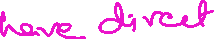 have dircet